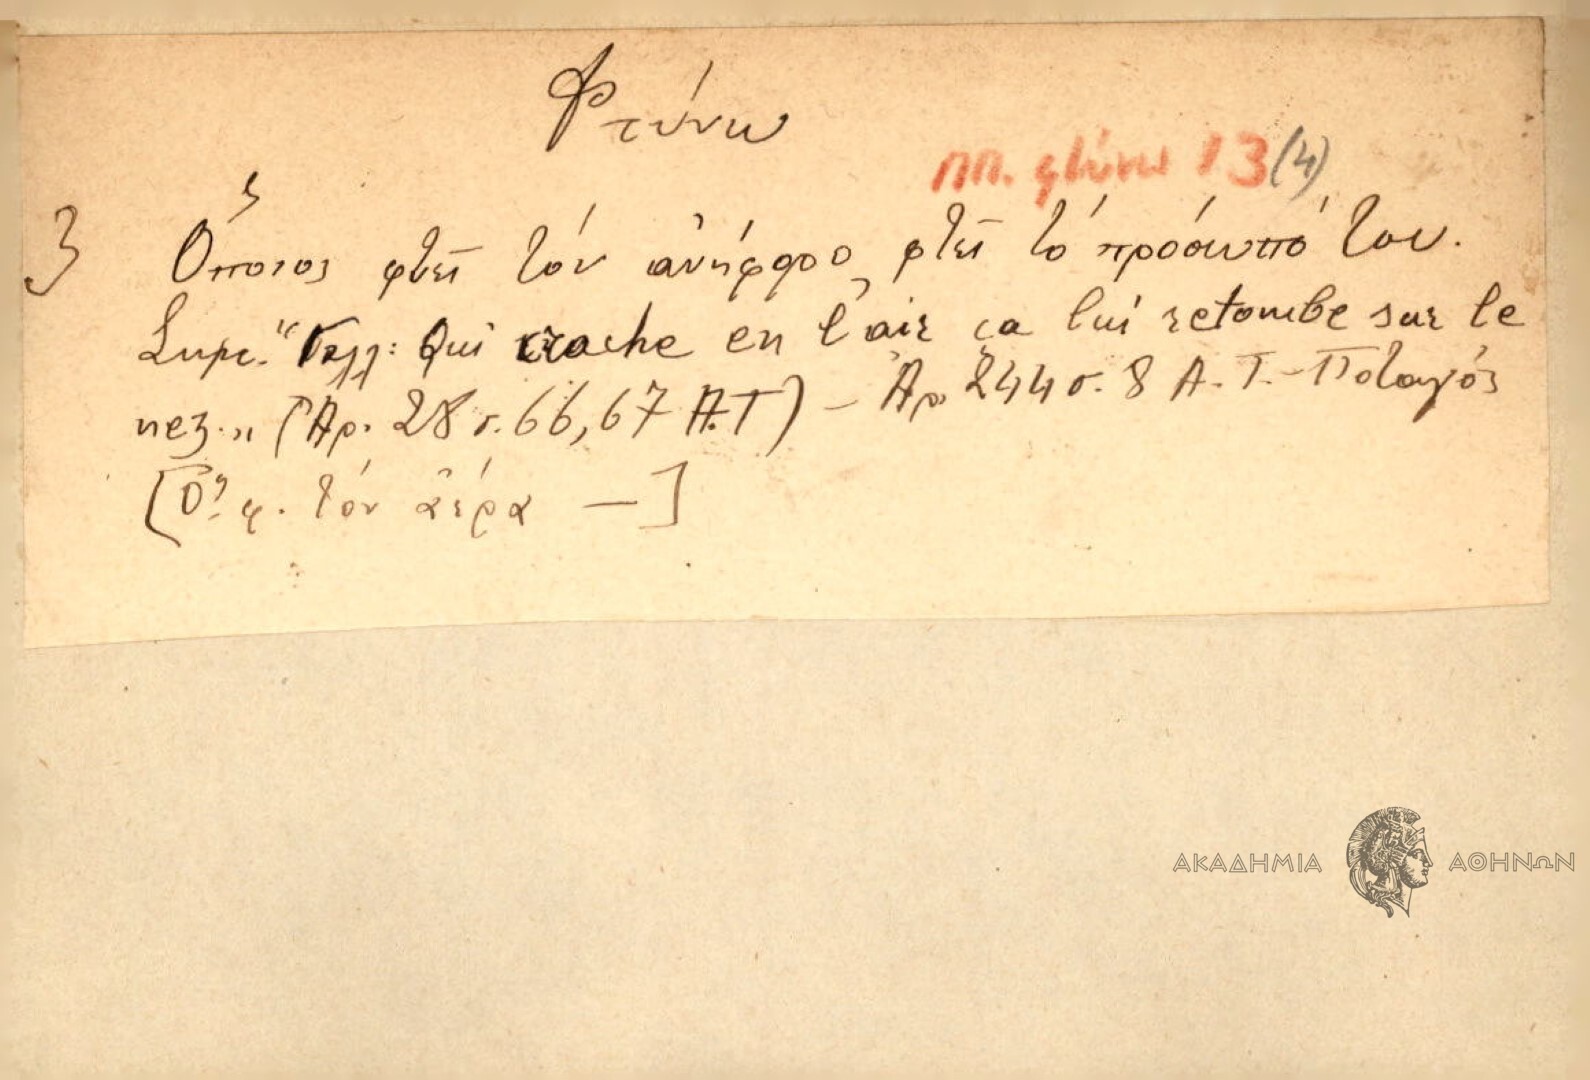 Φτύνω
ππ. φτύνω 13 (4)
3 Ὅποιος φτεῖ τόν ἀνήφορο, φτεῖ τό πρόσωπό του.
Σημ. "Γαλλ: Qui crache en l'air ça lui retombe sur le
nez." (Ἀρ. 28 σ. 66, 67 Α.Τ) — Ἀρ. 244 σ. 8 Α.Τ. - Ποταμός
[Ὅπ. φ. τόν ἀέρα —]
ΑΚΑΔΗΜΙΑ ΑΘΗΝΩΝ